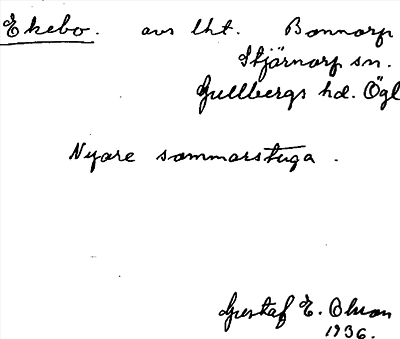 Ekebo. avs lht. Bonnorp
Stjärnorp sn.
Gullbergs hd. Ögl
Nyare sommarstuga.
Gustaf E. Olson
1936.